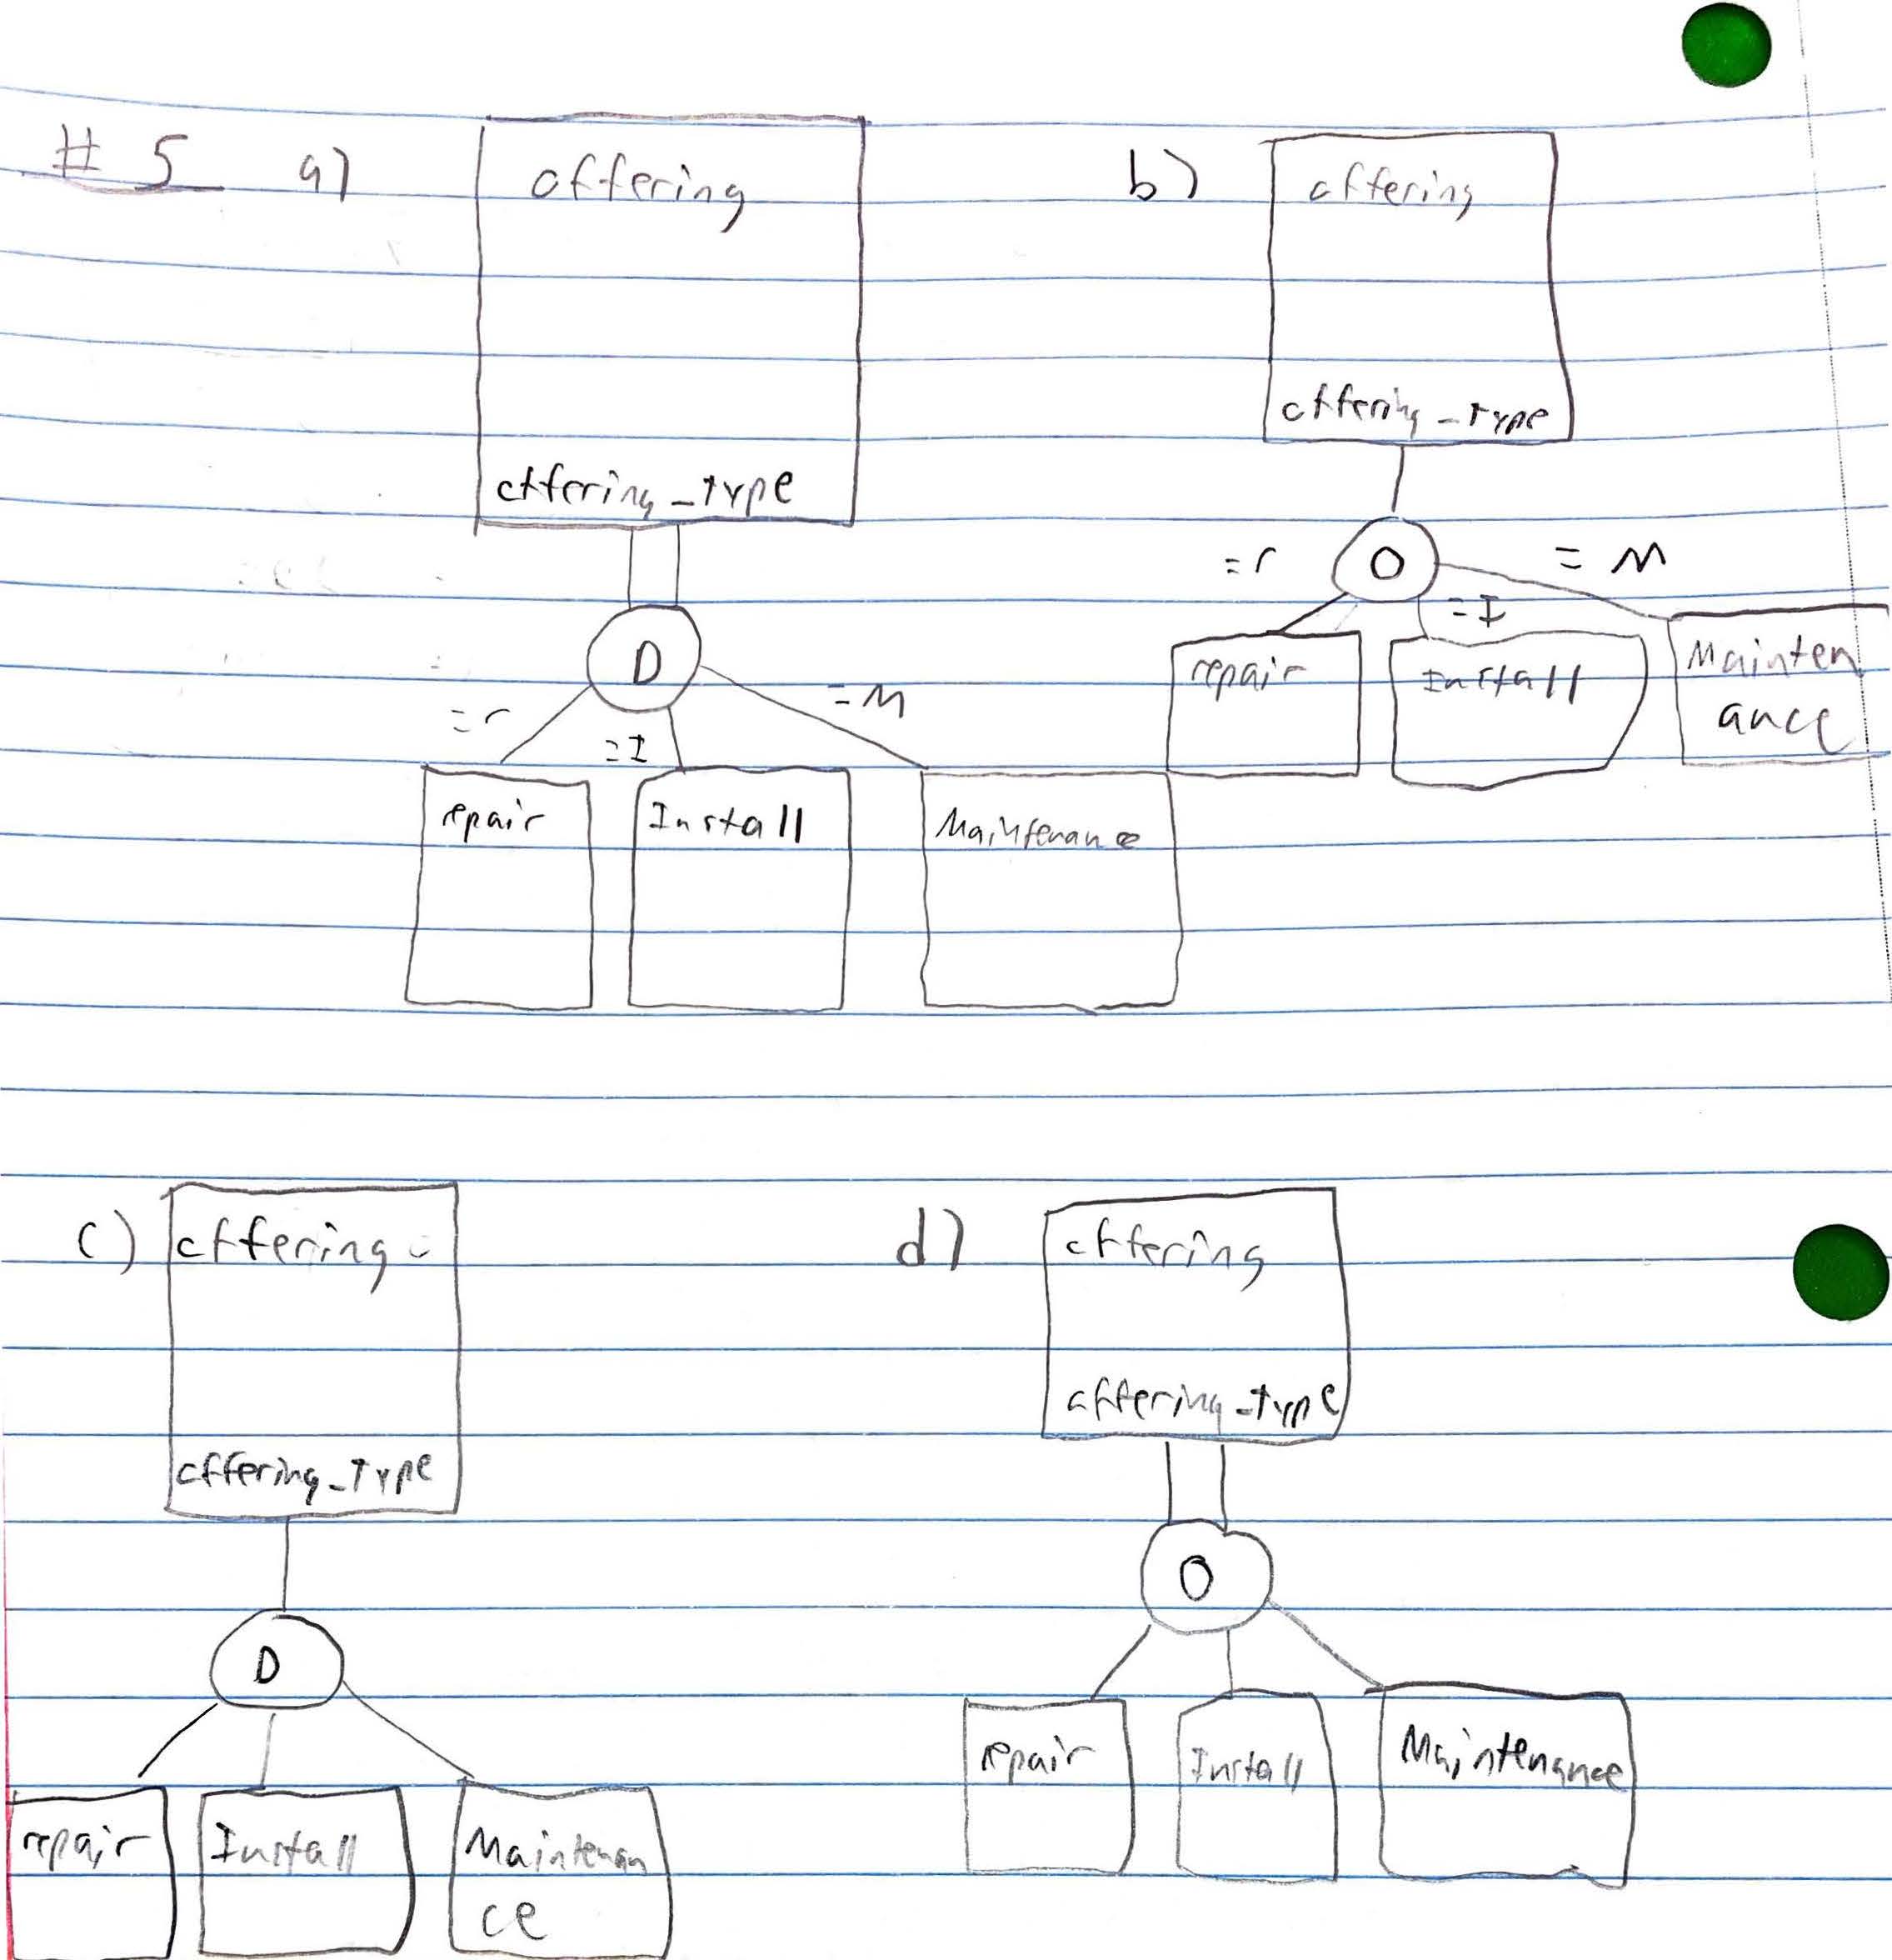 # 5 a)
offering
offering_type
D
=r
=I
=M
repair
Install
Maintenance
b)
offering
offering_type
O
=r
=I
= M
repair
Install
Mainten
ance
c)
offering
offering_type
D
repair
Install
Maintenan
ce
d)
offering
offering_type
O
repair
Install
Maintenance